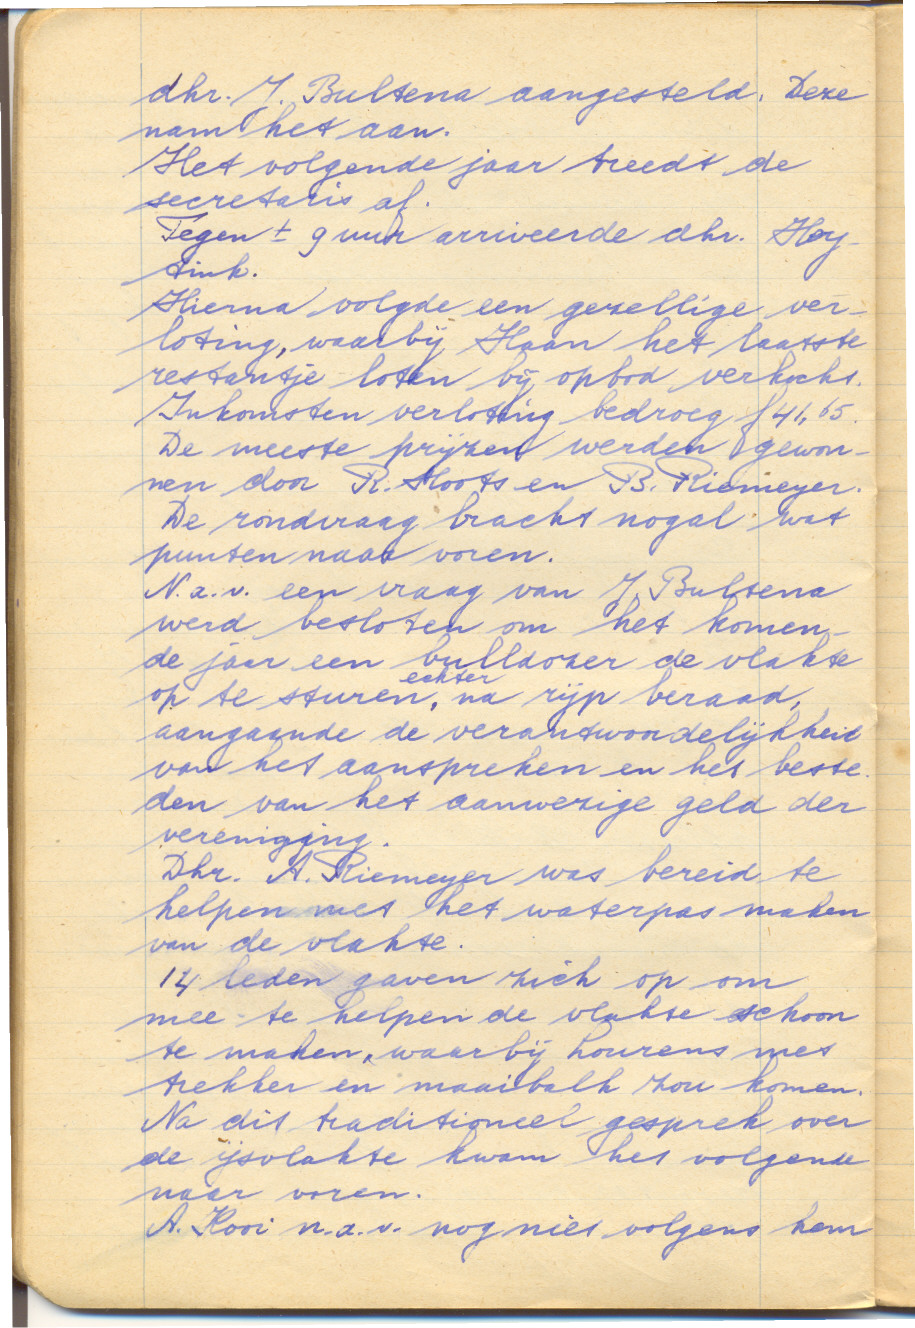 dhr. J. Bultena aangesteld. Deze
nam het aan.
Het volgende jaar treedt de
secretaris af.
Tegen ± 9 uur arriveerde dhr. Hey-
tink.
Hierna volgde een gezellige ver-
loting, waarbij Haan het laatste
restantje loten bij opbod verkocht.
Inkomsten verloting bedroeg f 41,65.
De meeste prijzen werden gewon-
nen door R. Sloots en B. Riemeyer.
De rondvraag bracht nogal wat
punten naar voren.
N.a.v. een vraag van J. Bultena
werd besloten om het komen-
de jaar een bulldozer de vlakte
op te sturen, echter na rijp beraad,
aangaande de verantwoordelijkheid
van het aanspreken en het beste-
den van het aanwezige geld der
vereniging.
Dhr. A. Riemeyer was bereid te
helpen met het waterpas maken
van de vlakte.
14 leden gaven zich op om
mee te helpen de vlakte schoon
te maken, waarbij Lourens met
trekker en maaibalk zou komen.
Na dit traditioneel gesprek over
de ijsvlakte kwam het volgende
naar voren.
A. Kooi n.a.v. nog niet volgens hem